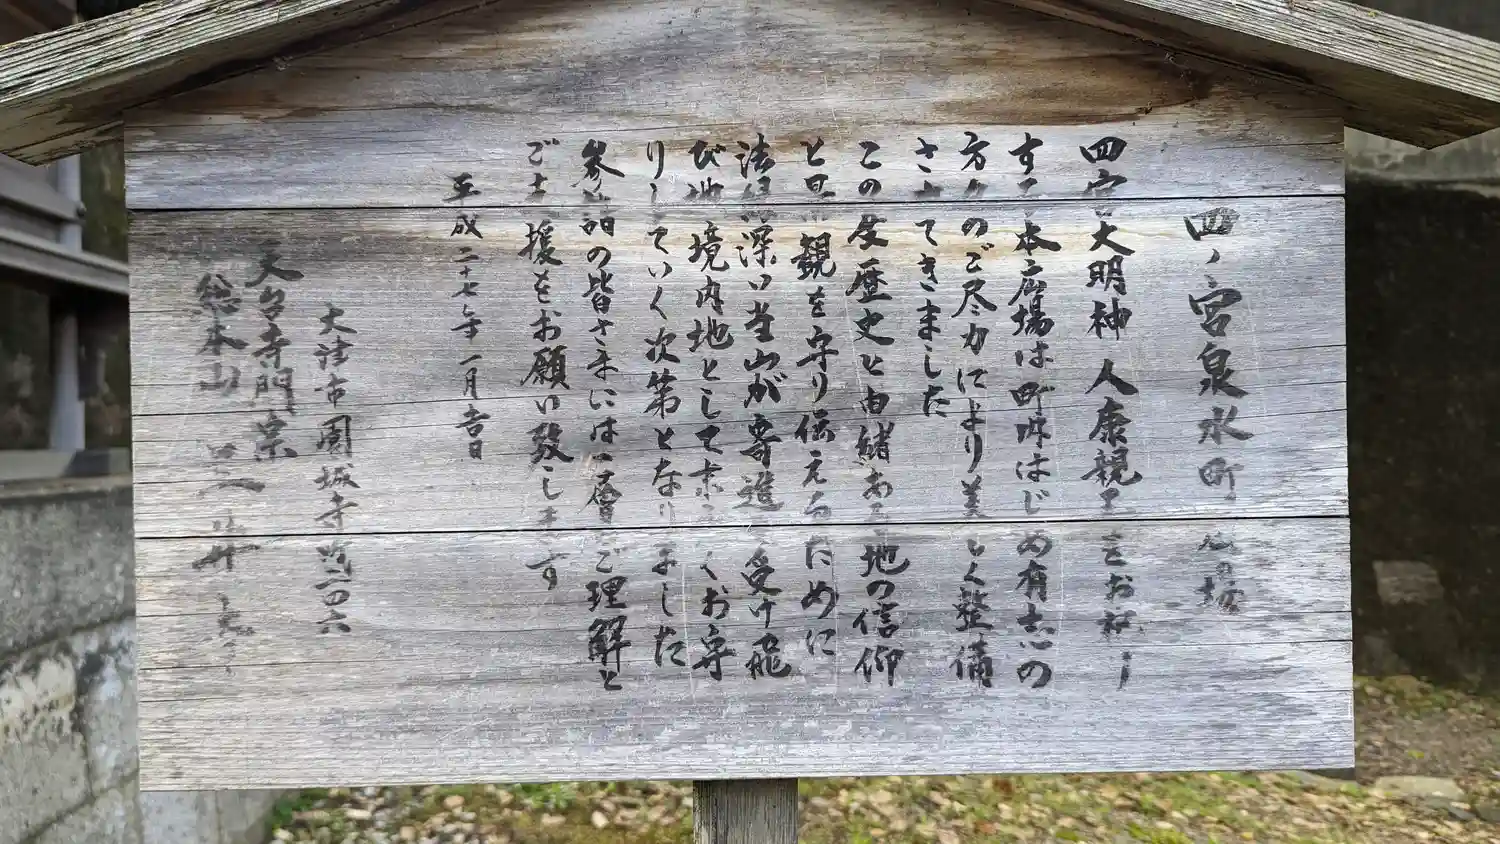 四ノ宮泉水町広場
四宮大明神 人康親王をお祀り
する本広場は町内はじめ有志の
方々のご尽力により美しく整備
されてきました
この度歴史と由緒ある地の信仰
と景観を守り伝えるために
法縁深い当山が寄進を受け飛
び地境内地として末永くお守
りしていく次第となりました
参詣の皆さまには一層のご理解と
ご支援をお願い致します
平成二十七年一月吉日
大津市園城寺町二四六
天台寺門宗
総本山 三井寺